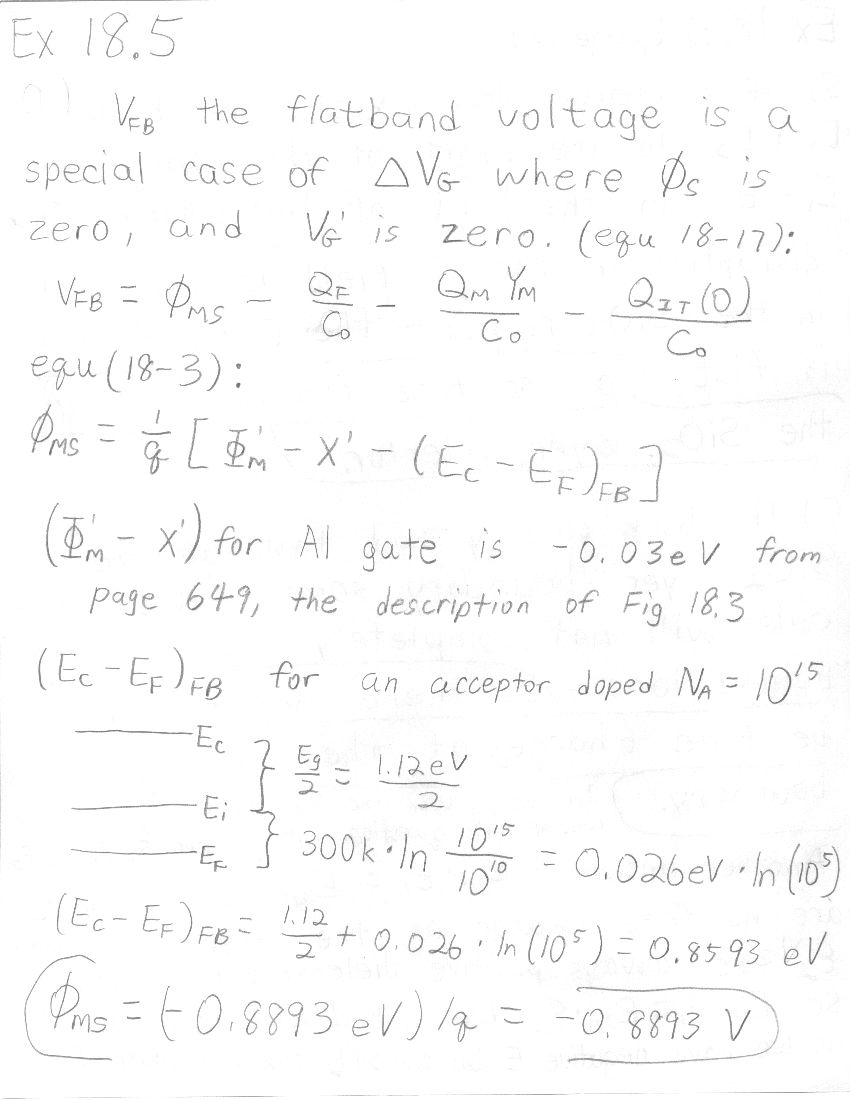 Ex 18.5
V_FB the flatband voltage is a
special case of ΔV_G where ϕ_S is
zero, and V_G' is zero. (equ 18-17):
V_FB = ϕ_MS - Q_F/C_O - Q_M Y_M/C_O - Q_IT(0)/C_O
equ (18-3):
ϕ_MS = 1/q [ Φ_M' - X' - (E_C - E_F)_FB ]
(Φ_M' - X') for Al gate is -0.03eV from
page 649, the description of Fig 18.3
(E_C - E_F)_FB for an acceptor doped N_A = 10^15
E_C
E_g/2 = 1.12eV/2
E_i
300k·ln 10^15/10^10 = 0.026eV·ln(10^5)
E_F
(E_C - E_F)_FB = 1.12/2 + 0.026·ln(10^5) = 0.8593 eV
ϕ_MS = (-0.8893 eV)/q = -0.8893 V